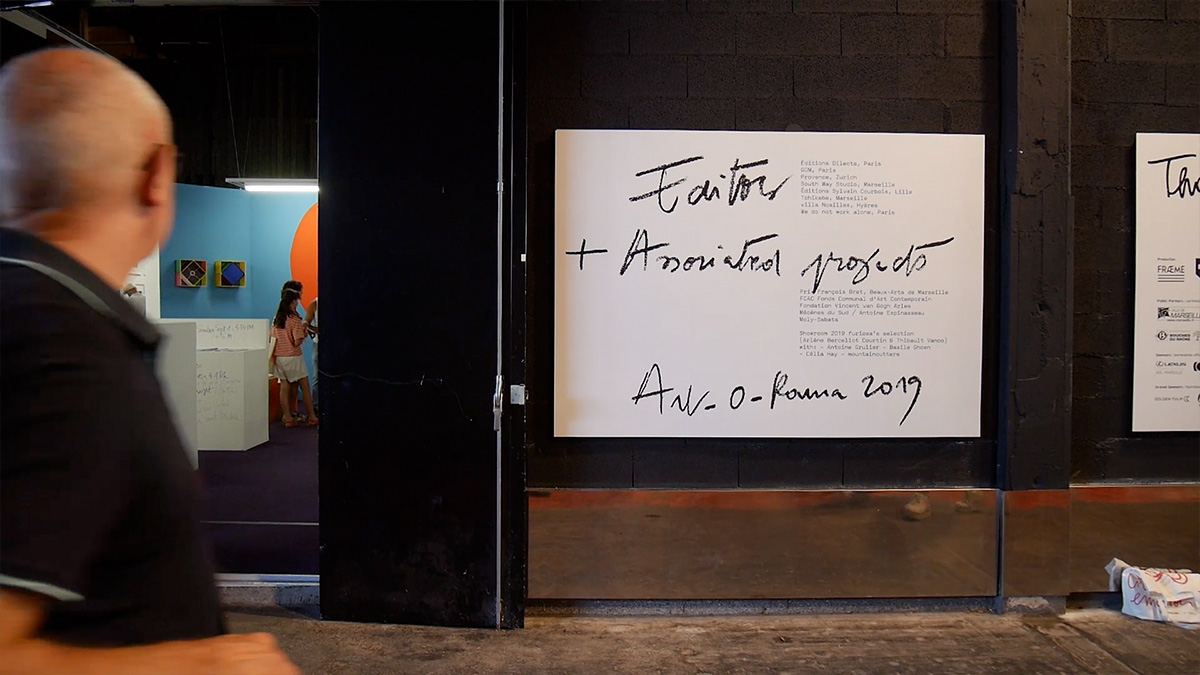 Editors
Éditions Dilecta, Paris
GDM, Paris
Provence, Zurich
South Way Studio, Marseille
Éditions Sylvain Courbois, Lille
Tchikebe, Marseille
villa Noailles, Hyères
We do not work alone, Paris
+ Associated projects
Prix François Bret, Beaux-Arts de Marseille
FCAC Fonds Communal d'Art Contemporain
Fondation Vincent van Gogh Arles
Mécènes du Sud / Antoine Espinasseau
Moly-Sabata
Showroom 2019 Furiosa's selection
(Arlène Berceliot Courtin & Thibault Vanco)
with: - Antoine Grulier - Basile Ghosn
- Célia Hay - mountaincutters
Art-O-Rama 2019
FRÆME
MARSEILLE
BOUCHES
DU RHÔNE
GOLDEN TULIP